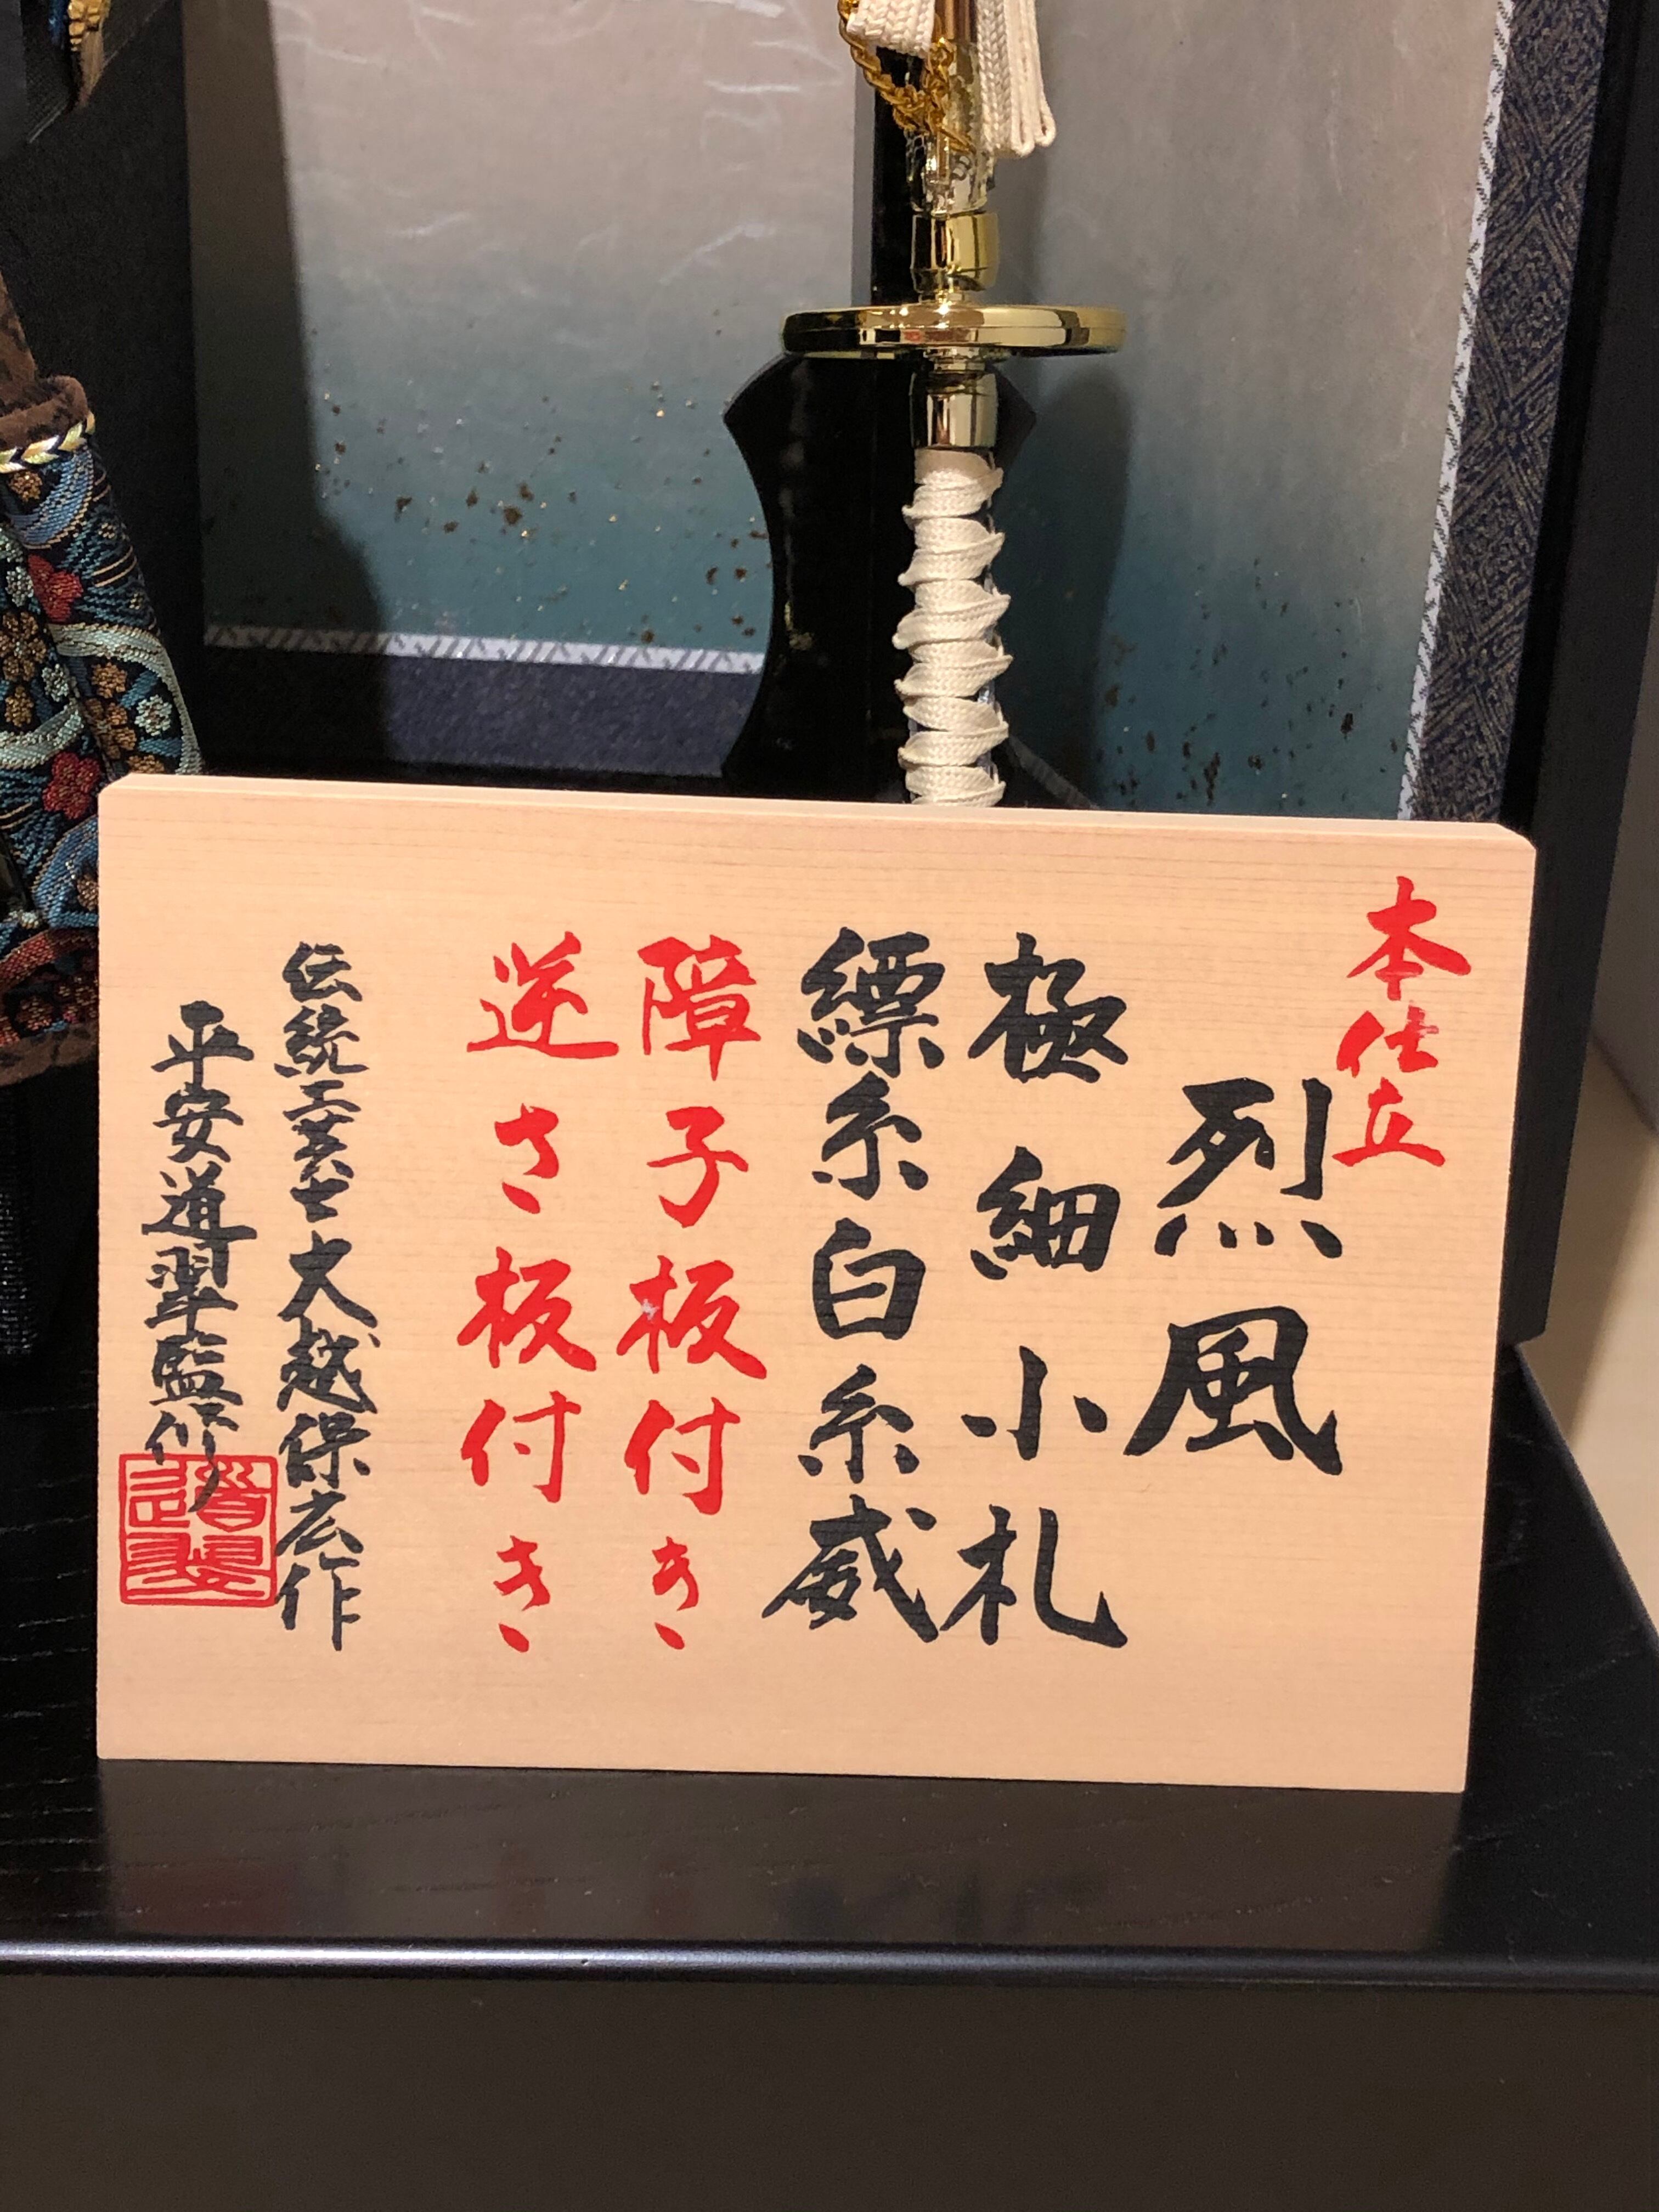 本仕立
烈風
極細小札
縹糸白糸威
障子板付き
逆さ板付き
伝統工芸士大越保広作
平安道翠監修